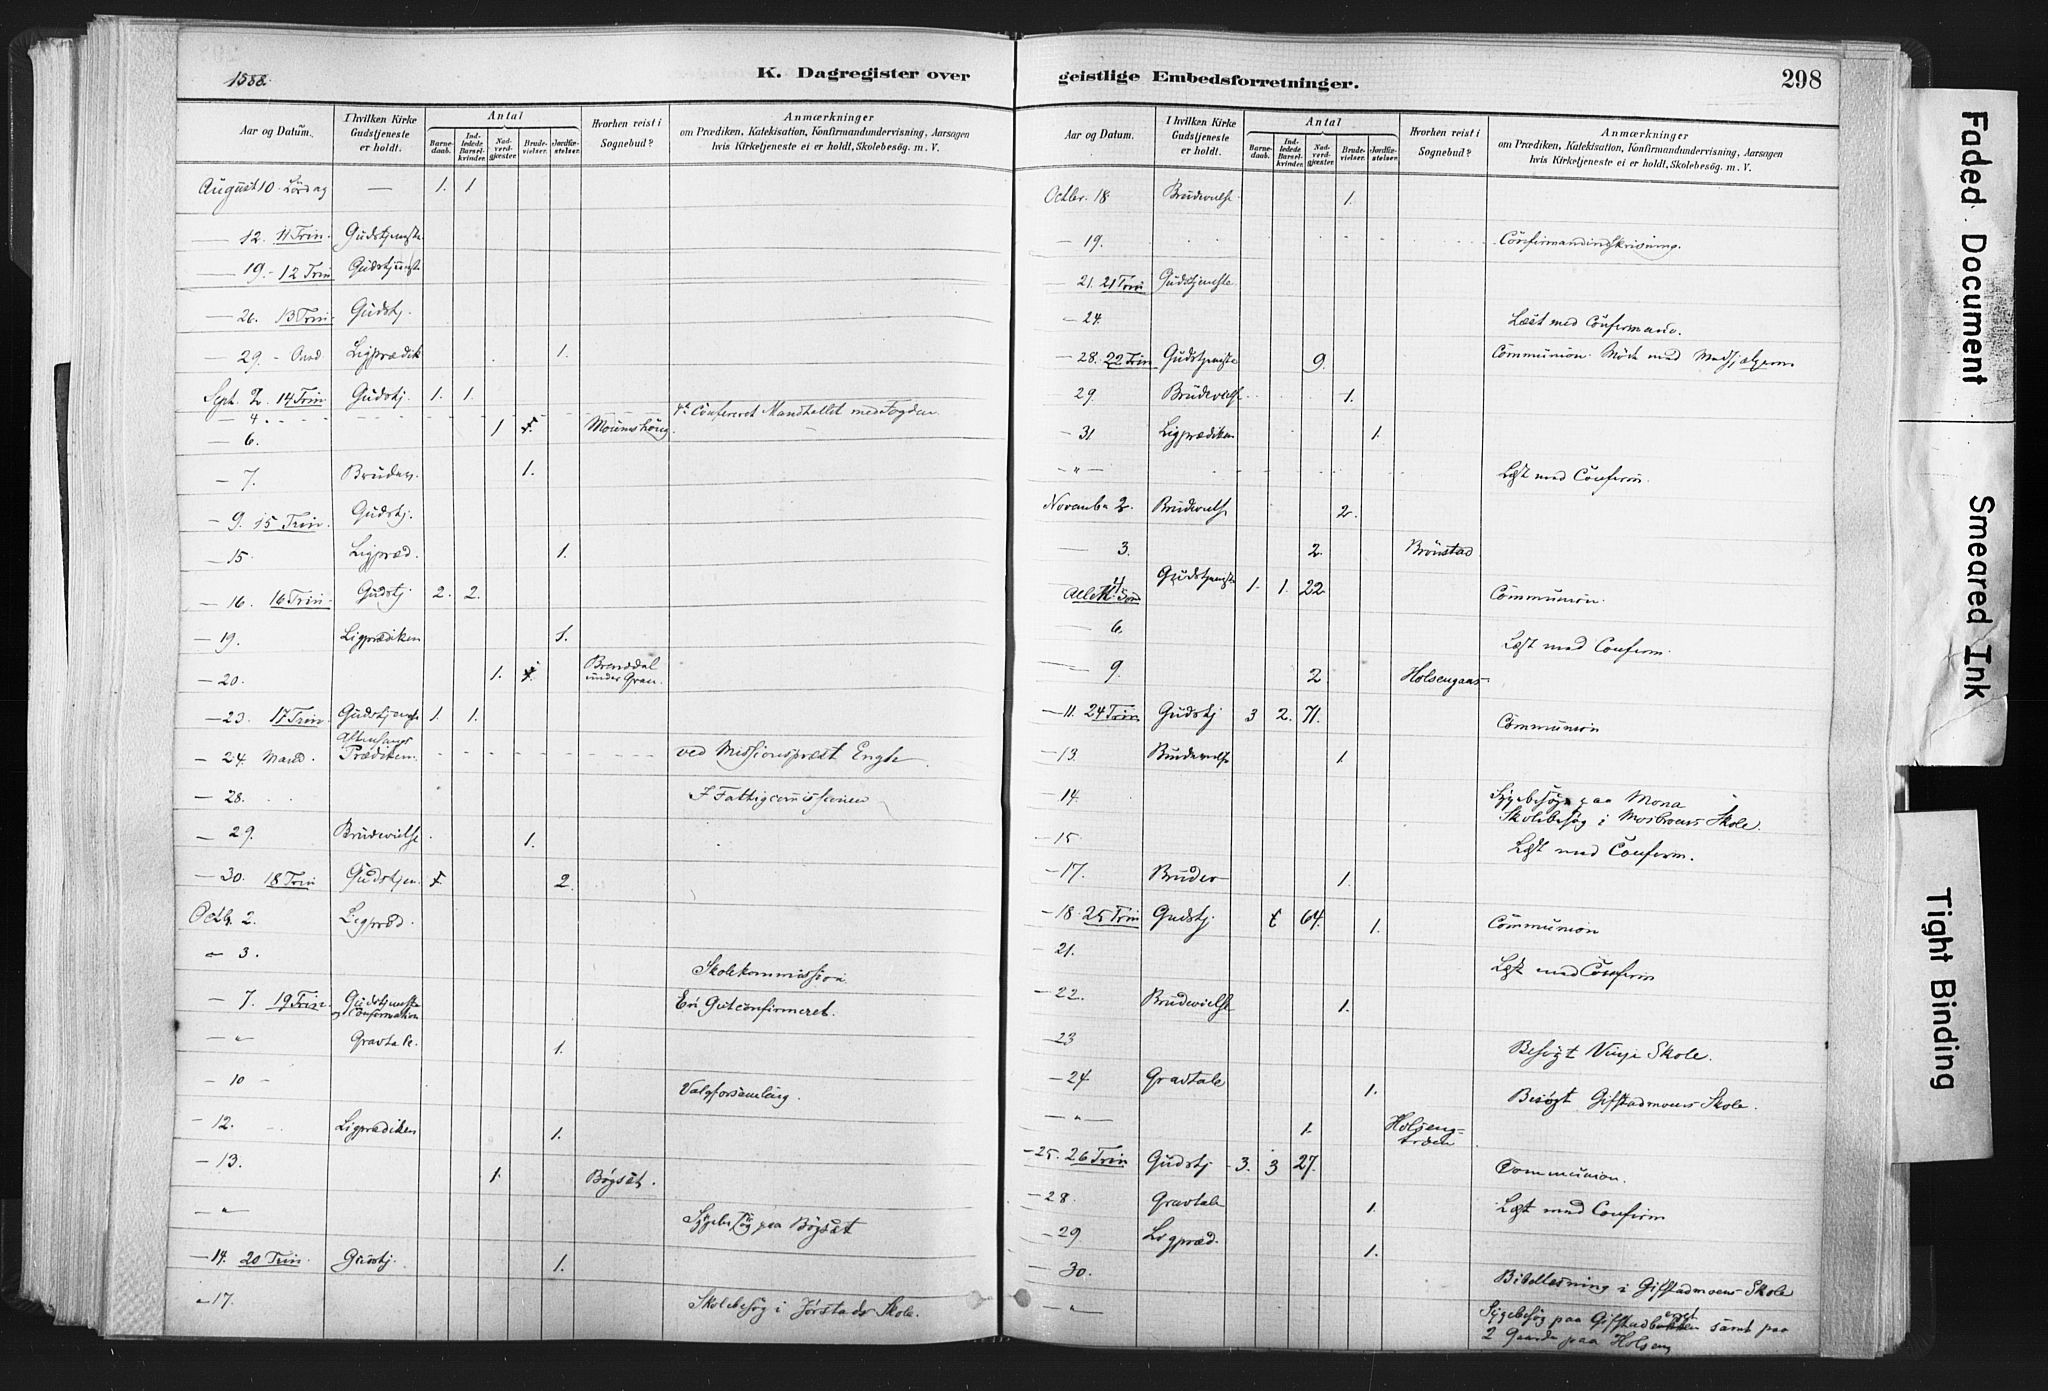 1888.
K. Dagregister over geistlige Embedsforretninger.
298
Aar og Datum.
I hvilken Kirke Gudstjeneste er holdt.
Antal
Barnedaab.
Indledede Barselkvinder.
Nadverdgjæster.
Brudevielser.
Jordfæstelser.
Hvorhen reist i Sognebud?
Anmærkninger
om Prædiken, Katekisation, Konfirmandundervisning, Aarsagen
hvis Kirketjeneste ei er holdt, Skolebesøg. m. V.
August 10 Lördag — 1. 1
— 12. 11 Trin. Gudstjeneste
— 19. - 12 Trin Gudstjeneste
— 26. 13 Trin. Gudstj.
— 29 - Onsd Ligprædik 1.
Sept. 2. 14 Trin Gudstj. 1. 1.
— 4. Mandtallet med Fogden.
— 6. 1
— 7. Brudev. 1.
— 9. 15 Trin. Gudstj.
— 15. Ligpræd. 1.
— 16. 16 Trin. Gudstj 2. 2.
— 19. Ligprædiken 1.
— 20. 1. Brenddal under Gran.
— 23. 17 Trin. Gudstjeneste 1. 1.
— 24. Mand. Aftensangs Prædiken. ved Missionspræst Engh.
— 28. I Fattigcomissionen
— 29. Brudevielse. 1.
— 30. 18 Trin Gudstjen. 2.
Octb. 2. Ligpræd.
" 3. Skolekommission.
— 7. 19 Trin. Gudstjeneste og Confirmation En Gut confirmeret.
— " Gravtale. 1.
— 10 - Valgforsamling.
— 12. Ligprædiken 1.
— 13. 1. Bøgset.
— " Sygebesøg paa Bøgset
— 14. 20 Trin. Gudstj. 1.
" 17. Skolebesøg i Jørstads Skole.
Aar og Datum.
I hvilken Kirke Gudstjeneste er holdt.
Antal
Barnedaab.
Indledede Barselkvinder.
Nadverdgjæster.
Brudevielser.
Jordfæstelser.
Hvorhen reist i Sognebud?
Anmærkninger
om Prædiken, Katekisation, Konfirmandundervisning, Aarsagen
hvis Kirketjeneste ei er holdt, Skolebesøg. m. V.
Octbr. 18 Brudevielse. 1.
— 19. Confirmandindskrivning.
— 21. 21 Trin Gudstjeneste.
— 24. Læst med Confirmand.
— 28. 22 Trin. Gudstjeneste 9. Communion. Möde med Medhjælperne
— 29. Brudevielse 1.
— 31. Ligprædiken 1.
— " — Læst med Confirm.
November 2. Brudevielse 2.
— 3. 2. Brönstad
4 Alle H. Sön Gudstjeneste 1. 1. 22 Communion.
— 6. Læst med Confirm.
— 9. 2. Holsengaas
— 11. 24 Trin. Gudstj 3 2. 71. Communion
— 13. Brudevielse 1.
— 14. Sygebesøg paa Mona
Skolebesøg i Mosbroens Skole.
— 15 Læst med Confirm.
— 17. Brudev 1.
— 18. 25 Trin Gudstj. 64. 1. Communion
— 21. Læst med Confirm
— 22. Brudevielse 1.
— 23 Besøgt Vinje Skole.
— 24 Gravtale 1. Besøgt Gifstadmoens Skole.
— " — 1. Holseng-
— 25. 26 Trin Gudstj 3. 3 27. Communion.
— 28. Gravtale 1. Læst med Confirm
— 29 Ligpræd. 1.
— 30. Bibellesning i Gifstadmoens Skole
— " — Sygebesøg paa samt paa
2 Gaarde paa Holseng
Faded Document Smeared Ink
Tight Binding